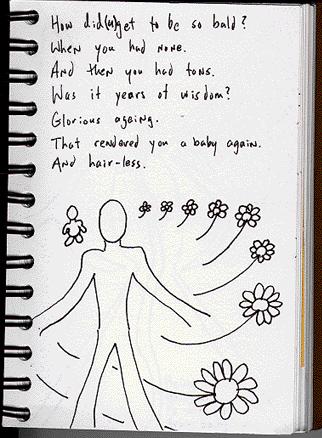 How did(u)get to be so bald?
When you had none.
And then you had tons.
Was it years of wisdom?
Glorious ageing.
That rendered you a baby again.
And hair-less.